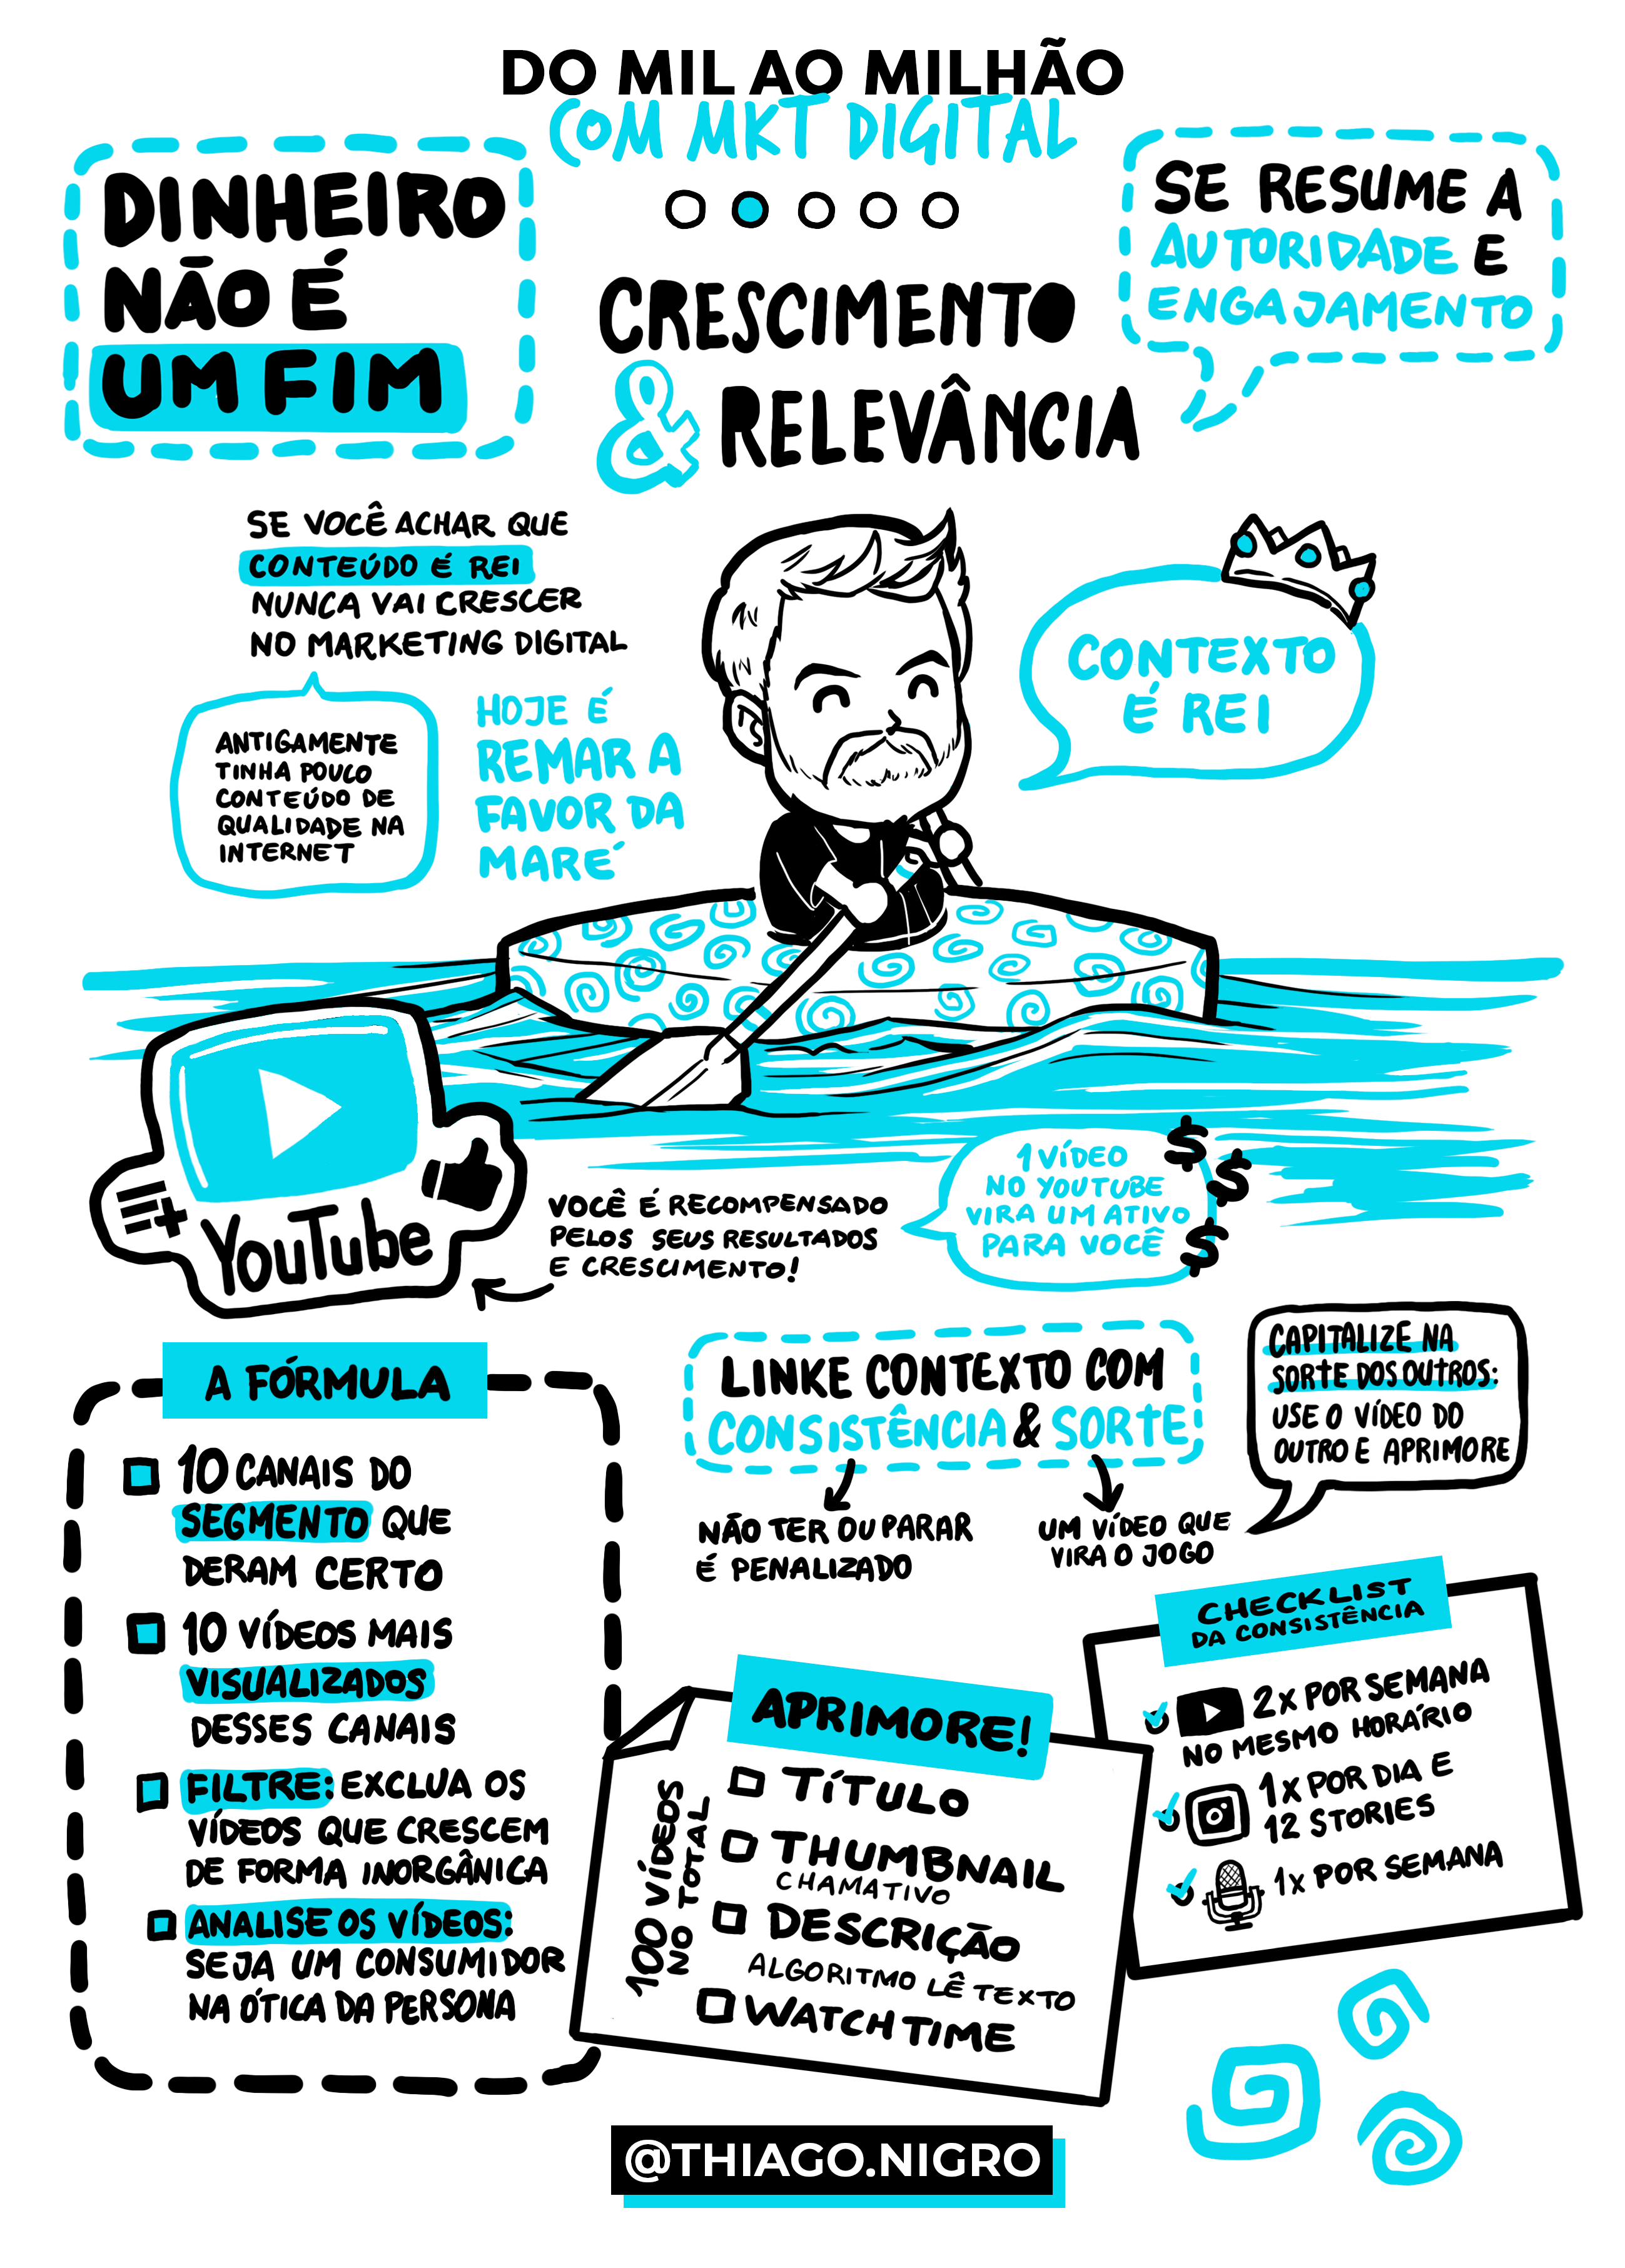 DO MIL AO MILHÃO
COM MKT DIGITAL
DINHEIRO
NÃO É
UM FIM
SE RESUME A
AUTORIDADE E
ENGAJAMENTO
CRESCIMENTO
& RELEVÂNCIA
SE VOCÊ ACHAR QUE
CONTEÚDO É REI
NUNCA VAI CRESCER
NO MARKETING DIGITAL
ANTIGAMENTE
TINHA POUCO
CONTEÚDO DE
QUALIDADE NA
INTERNET
HOJE É
REMAR A
FAVOR DA
MARÉ
CONTEXTO
É REI
YouTube
VOCÊ É RECOMPENSADO
PELOS SEUS RESULTADOS
E CRESCIMENTO!
1 VÍDEO
NO YOUTUBE
VIRA UM ATIVO
PARA VOCÊ
$
$
$
A FÓRMULA
10 CANAIS DO
SEGMENTO QUE
DERAM CERTO
10 VÍDEOS MAIS
VISUALIZADOS
DESSES CANAIS
FILTRE: EXCLUA OS
VÍDEOS QUE CRESCEM
DE FORMA INORGÂNICA
ANALISE OS VÍDEOS:
SEJA UM CONSUMIDOR
NA ÓTICA DA PERSONA
LINKE CONTEXTO COM
CONSISTÊNCIA & SORTE
NÃO TER OU PARAR
É PENALIZADO
UM VÍDEO QUE
VIRA O JOGO
CAPITALIZE NA
SORTE DOS OUTROS:
USE O VÍDEO DO
OUTRO E APRIMORE
APRIMORE!
100 VÍDEOS
NO TOTAL
TÍTULO
THUMBNAIL
CHAMATIVO
DESCRIÇÃO
ALGORITMO LÊ TEXTO
WATCH TIME
CHECKLIST
DA CONSISTÊNCIA
2x POR SEMANA
NO MESMO HORÁRIO
1x POR DIA E
12 STORIES
1x POR SEMANA
@THIAGO.NIGRO